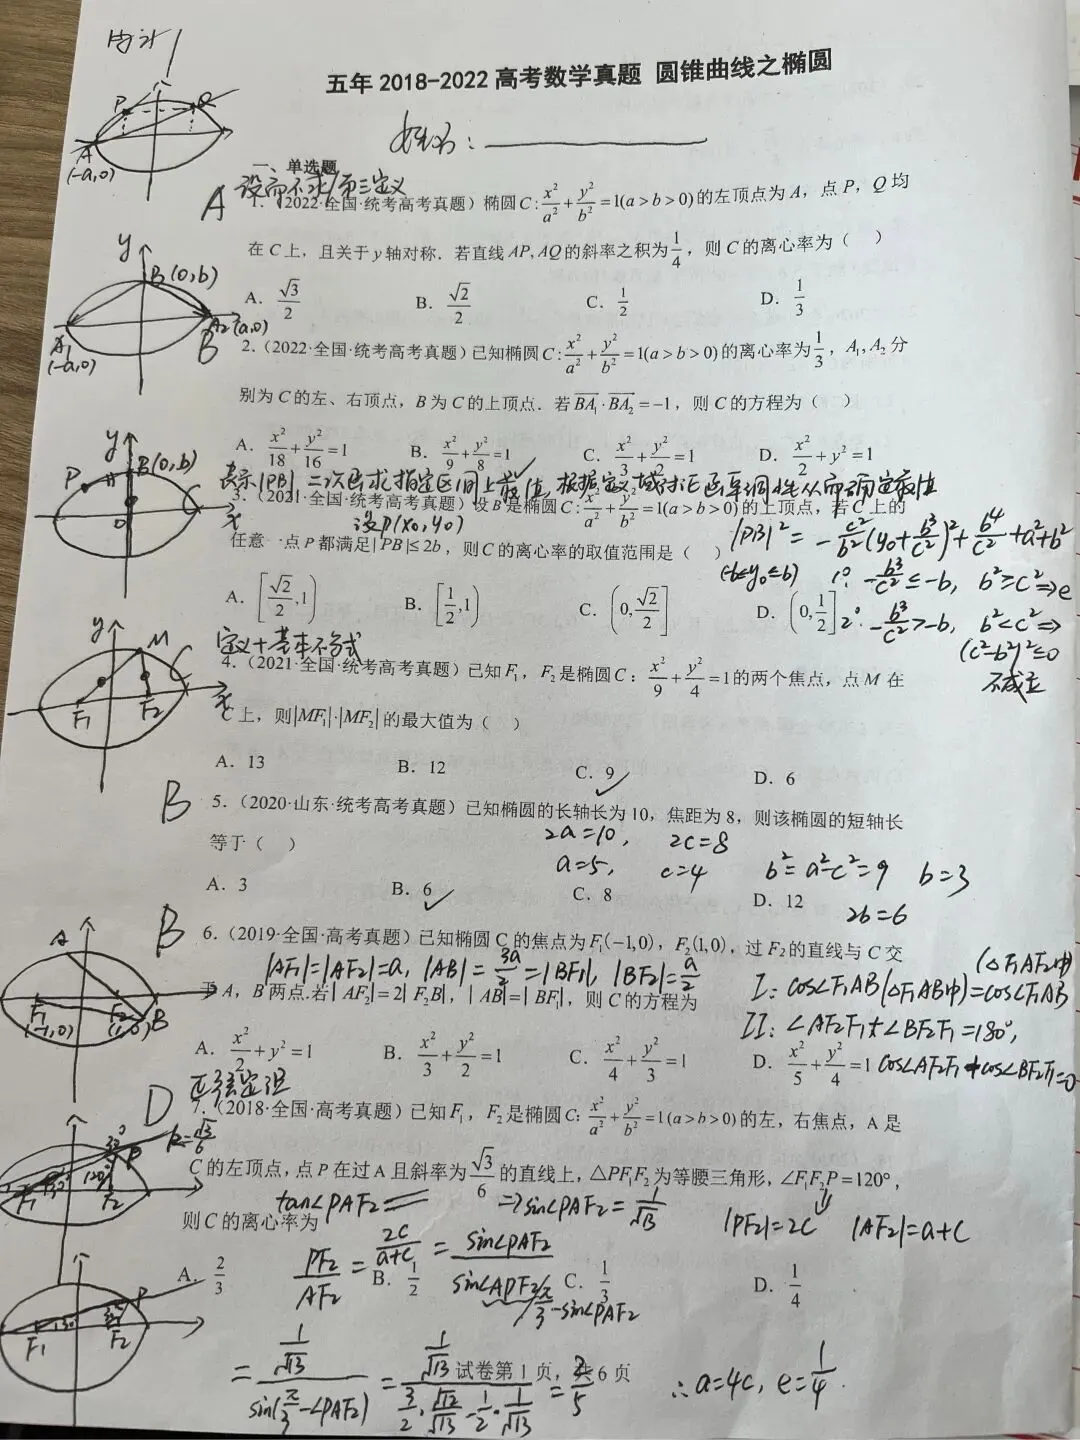 五年 2018-2022 高考数学真题 圆锥曲线之椭圆
姓名：
一、单选题
设而不求/第三定义
A
1.（2022·全国·统考高考真题）椭圆C:x²/a²+y²/b²=1(a>b>0)的左顶点为A，点P，Q均
在C上，且关于y轴对称．若直线AP,AQ的斜率之积为1/4，则C的离心率为（ ）
A．√3/2 B．√2/2 C．1/2 D．1/3
P
A
(-a,0)
y
B(0,b)
A₁
(-a,0)
A₂(a,0)
B
2.（2022·全国·统考高考真题）已知椭圆C:x²/a²+y²/b²=1(a>b>0)的离心率为1/3，A₁,A₂分
别为C的左、右顶点，B为C的上顶点．若BA₁·BA₂=-1，则C的方程为（ ）
A．x²/18+y²/16=1 B．x²/9+y²/8=1 C．x²/3+y²/2=1 D．x²/2+y²=1
表示|PB|，二次函求指定区间上最值，根据定义域讨论函单调性从而确定最值
C
3.（2021·全国·统考高考真题）设B是椭圆C:x²/a²+y²/b²=1(a>b>0)的上顶点，若C上的
设P(x₀,y₀)
任意一点P都满足|PB|≤2b，则C的离心率的取值范围是（ ）
|PB|²=-c²/b²(y₀+b³/c²)²+b⁴/c²+a²+b²
(-b≤y₀≤b)
1° -b³/c²≤-b, b²≥c²⇒e
A．[√2/2,1) B．[1/2,1) C．(0,√2/2] D．(0,1/2]
2° -b³/c²>-b, b²<c²⇒
(c²-b²)²≤0
不成立
y
P
B(0,b)
O
x
定义+基本不等式
C
4.（2021·全国·统考高考真题）已知F₁，F₂是椭圆C：x²/9+y²/4=1的两个焦点，点M在
C上，则|MF₁|·|MF₂|的最大值为（ ）
A．13 B．12 C．9✓ D．6
y
M
F₁
F₂
x
B
5.（2020·山东·统考高考真题）已知椭圆的长轴长为10，焦距为8，则该椭圆的短轴长
等于（ ）
2a=10, 2c=8
a=5, c=4 b²=a²-c²=9 b=3
A．3 B．6✓ C．8 D．12
2b=6
B
6.（2019·全国·高考真题）已知椭圆C的焦点为F₁(-1,0)，F₂(1,0)，过F₂的直线与C交
|AF₁|=|AF₂|=a, |AB|=3a/2=|BF₁|, |BF₂|=a/2
于A，B两点.若|AF₂|=2|F₂B|，|AB|=|BF₁|，则C的方程为
(△F₁AF₂中)
I: cos∠F₁AB(△F₁AB中)=cos∠F₁AB
II: ∠AF₂F₁+∠BF₂F₁=180°,
A．x²/2+y²=1 B．x²/3+y²/2=1 C．x²/4+y²/3=1 D．x²/5+y²/4=1
cos∠AF₂F₁+cos∠BF₂F₁=0
A
F₁
(-1,0)
F₂
(1,0)
B
正弦定理
D
7.（2018·全国·高考真题）已知F₁，F₂是椭圆C:x²/a²+y²/b²=1(a>b>0)的左，右焦点，A是
C的左顶点，点P在过A且斜率为√3/6的直线上，△PF₁F₂为等腰三角形，∠F₁F₂P=120°，
tan∠PAF₂= ⇒sin∠PAF₂=1/√13 |PF₂|=2c |AF₂|=a+c
则C的离心率为
PF₂/AF₂=2c/(a+c)=sin∠PAF₂/sin∠APF₂
π/3-sin∠PAF₂
A．2/3 B．1/2 C．1/3 D．1/4
k=√3/6
P
120°
F₁
F₂
P
F₁
F₂
=(1/√13)/sin(π/3-∠PAF₂)=(1/√13)/(√3/2·√12/√13-1/2·1/√13)=2/5
∴a=4c, e=1/4.
试卷第1页，共6页